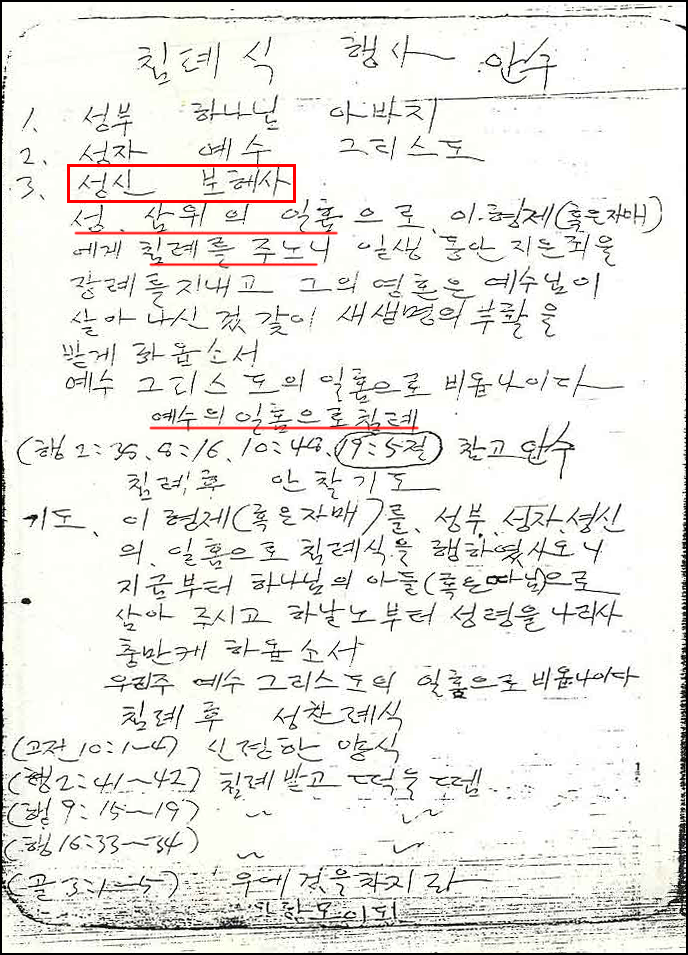 침례식 행사 안수
1. 성부 하나님 아바지
2. 성자 예수 그리스도
3. 성신 보혜사
성, 삼위의 일홈으로, 이.형제(혹은자매)
에게 침례를 주노니 일생 동안 지은 죄을
장례를 지내고 그의 영혼은 예수님이
살아 나신 것 같이 새생명의 부활을
받게 하옵소서
예수 그리스도의 일홈으로 비옵나이다
예수의 일홈으로 침례
(행 2:38, 8:16, 10:48, 19:5절 참고 안수
침례후 안찰기도
기도, 이 형제(혹은자매)를, 성부, 성자, 성신
의, 일홈으로 침례식을 행하였사오니
지금부터 하나님의 아들(혹은따님)으로
삼아 주시고 하날노부터 성령을 나리사
충만케 하옵소서
우리주 예수 그리스도의 일홈으로 비옵나이다
침례후 성찬례식
(고전 10:1~4) 신정한 양식
(행 2:41~42) 침례받고 떡을 뗌
(행 9:15~19) 〃 〃
(행 16:33~34) 〃 〃
(골 3:1~5) 우에것을 차지라